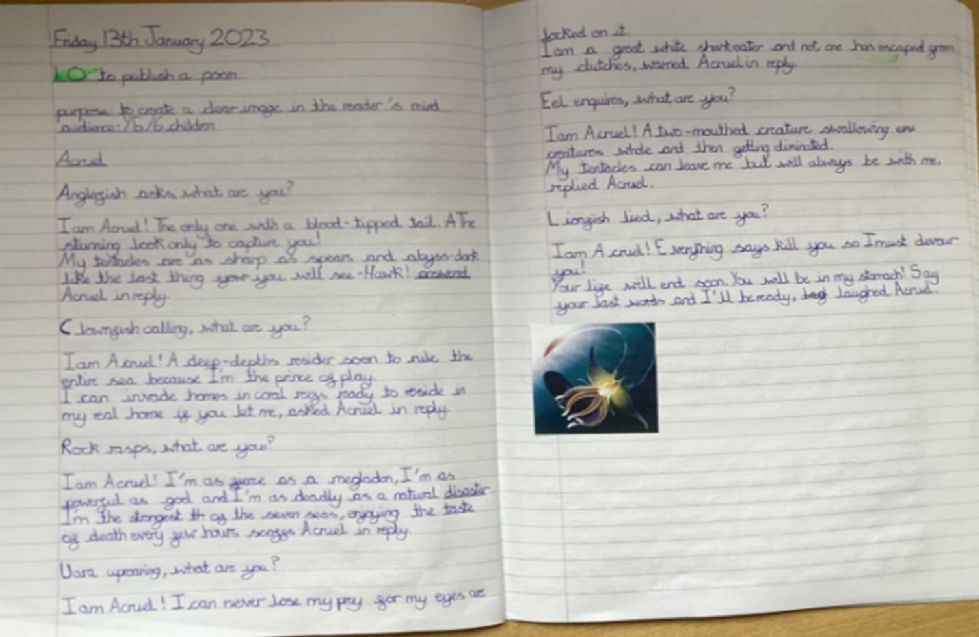 Friday 13th January 2023
LO to publish a poem
purpose: to create a clear image in the reader's mind
audience: Y5/6 children
Acruel
Anglefish asks, what are you?
I am Acruel! The only one with a blood-tipped tail. A The
stunning look only to capture you!
My tentacles are as sharp as spears and abyss-dark
like the last thing you will see - Hawk!
Acruel in reply.
Clownfish calling, what are you?
I am Acruel! A deep-depths resider soon to rule the
entire sea because I'm the prince of play.
I can invade homes in coral reefs ready to reside in
my real home if you let me, asked Acruel in reply.
Rock rasps, what are you?
I am Acruel! I'm as fierce as a megladon, I'm as
powerful as god and I'm as deadly as a natural disaster.
I'm the strongest th of the seven seas, enjoying the taste
of death every few hours scoffs Acruel in reply.
uproaring, what are you?
I am Acruel! I can never lose my prey for my eyes are
locked on it.
I am a great white shark eater and not one has escaped from
my clutches, warned Acruel in reply.
Eel enquires, what are you?
I am Acruel! A two-mouthed creature swallowing
creatures whole and then getting
My tentacles can leave me but will always be with me,
replied Acruel.
Lionfish lied, what are you?
I am Acruel! Everything says kill you so I must devour
you!
Your life will end soon. You will be in my stomach! Say
your last words and I'll be ready, laughed Acruel.